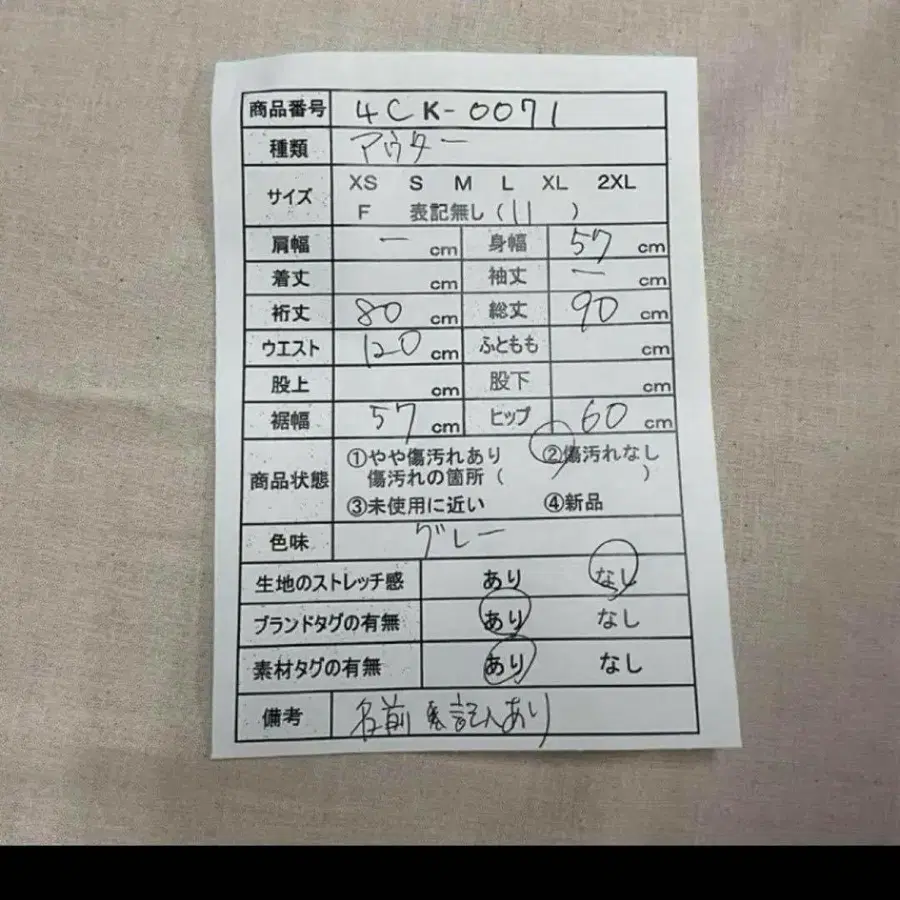 商品番号 4CK-0071
種類 アウター
サイズ XS S M L XL 2XL
F 表記無し(11 )
肩幅 ー cm 身幅 57 cm
着丈 cm 袖丈 ー cm
裄丈 80 cm 総丈 90 cm
ウエスト 120 cm ふともも cm
股上 cm 股下 cm
裾幅 57 cm ヒップ 60 cm
商品状態 ①やや傷汚れあり ②傷汚れなし
傷汚れの箇所( )
③未使用に近い ④新品
色味 グレー
生地のストレッチ感 あり なし
ブランドタグの有無 あり なし
素材タグの有無 あり なし
備考 名前 記入あり